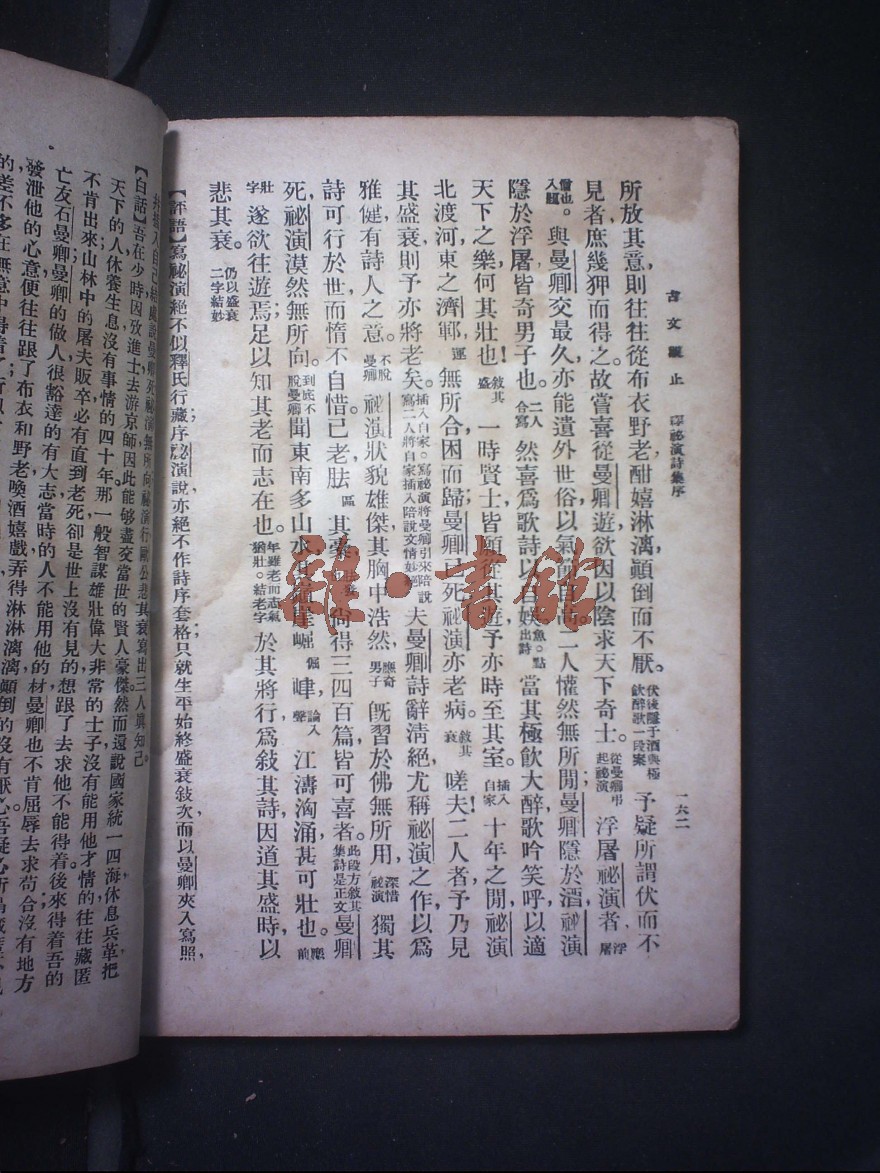 古文觀止 釋祕演詩集序 一六二
所放其意則往往從布衣野老酣嬉淋漓顚倒而不厭。伏後隱于酒與極飲醉歌一段案 予疑所謂伏而不
見者庶幾狎而得之故嘗喜從曼卿遊欲因以陰求天下奇士。從曼卿弔起祕演 浮屠祕演者浮屠
僧也。入題 與曼卿交最久亦能遺外世俗以氣節二人懽然無所閒曼卿隱於酒祕演
隱於浮屠皆奇男子也。二人合寫 然喜爲歌詩以自娛魚。點出詩 當其極飲大醉歌吟笑呼以適
天下之樂何其壯也！敘其盛 一時賢士皆願從其遊予亦時至其室。插入自家 十年之閒祕演
北渡河東之濟鄆運 無所合困而歸曼卿已死祕演亦老病。敘其衰 嗟夫！二人者予乃見
其盛衰則予亦將老矣。插入自家。寫祕演將曼卿引來陪說寫二人將自家插入陪說文情妙絕 夫曼卿詩辭淸絕尤稱祕演之作以爲
雅健有詩人之意。不脫曼卿 祕演狀貌雄傑其胸中浩然應奇男子 旣習於佛無所用深惜祕演 獨其
詩可行於世而惰不自惜已老胠區 其橐 尙得三四百篇皆可喜者。此段方敘其集詩是正文 曼卿
死祕演漠然無所向。到底不脫曼卿 聞東南多山水其巓崖崛倔 峍論入聲 江濤洶涌甚可壯也。應前
壯字 遂欲往遊焉足以知其老而志在也。年雖老而志氣猶壯。結老字 於其將行爲敍其詩因道其盛時以
悲其衰。仍以盛衰二字結妙
【評語】寫祕演絕不似釋氏行藏序祕演說亦絕不作詩序套格只就生平始終盛衰敍次而以曼卿夾入寫照
自己結處說曼卿死祕演無所向祕演行歐公悲其衰寫出三人眞知己。
【白話】吾在少時因致進士去游京師因此能够盡交當世的賢人豪傑然而還說國家統一四海休息兵革把
天下的人休養生息沒有事情的四十年那一般智謀雄壯偉大非常的士子沒有能用他才情的往往藏匿
不肯出來山林中的屠夫販卒必有直到老死卻是世上沒有見的想跟了去求他不能得着後來得着吾的
亡友石曼卿曼卿的做人很豁達的有大志當時的人不能用他的材曼卿也不肯屈辱去求苟合沒有地方
發泄他的心意便往往跟了布衣和野老喚酒嬉戲弄得淋淋漓漓顚倒的沒有厭心吾疑心所
的差不多在無意中得着了